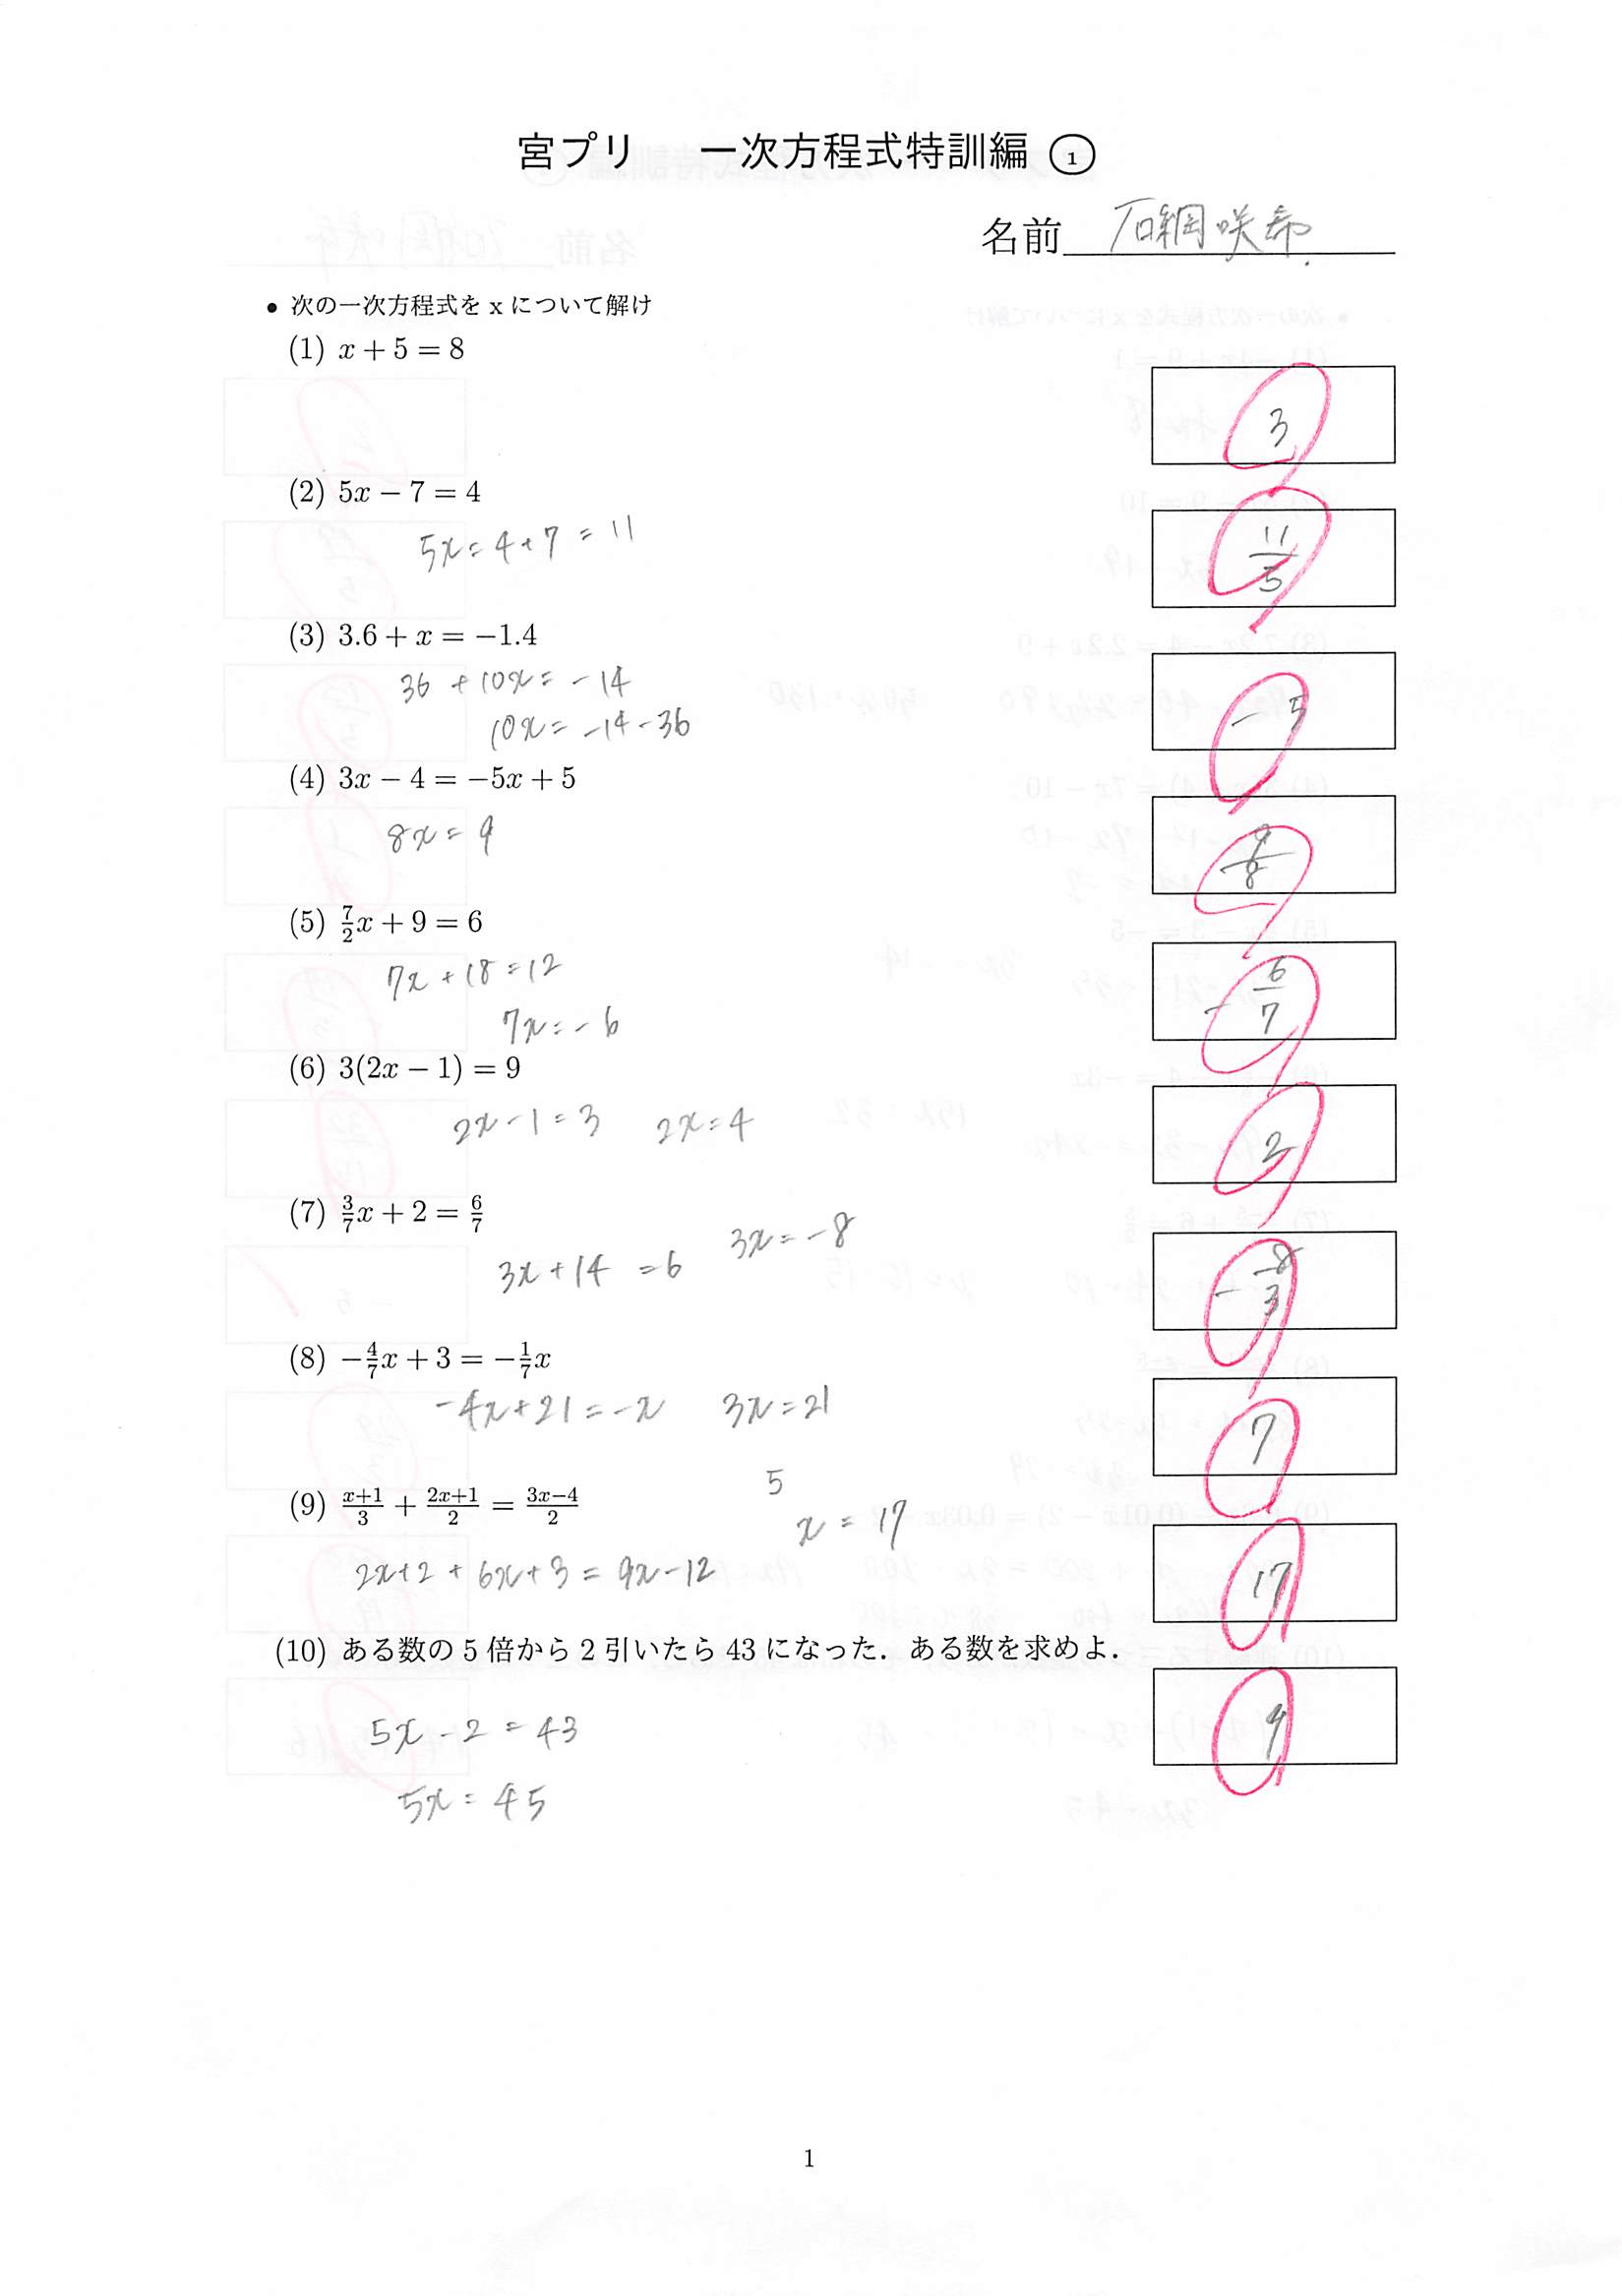 宮プリ　一次方程式特訓編 ①
名前 石綱咲希
• 次の一次方程式を x について解け
(1) x + 5 = 8
3
(2) 5x − 7 = 4
5x = 4 + 7 = 11
11/5
(3) 3.6 + x = −1.4
36 + 10x = −14
10x = −14 − 36
−5
(4) 3x − 4 = −5x + 5
8x = 9
9/8
(5) 7/2 x + 9 = 6
7x + 18 = 12
7x = −6
−6/7
(6) 3(2x − 1) = 9
2x − 1 = 3　2x = 4
2
(7) 3/7 x + 2 = 6/7
3x + 14 = 6　3x = −8
−8/3
(8) −4/7 x + 3 = −1/7 x
−4x + 21 = −x　3x = 21
7
(9) (x+1)/3 + (2x+1)/2 = (3x−4)/2
5
x = 17
2x + 2 + 6x + 3 = 9x − 12
17
(10) ある数の 5 倍から 2 引いたら 43 になった．ある数を求めよ．
5x − 2 = 43
5x = 45
9
1